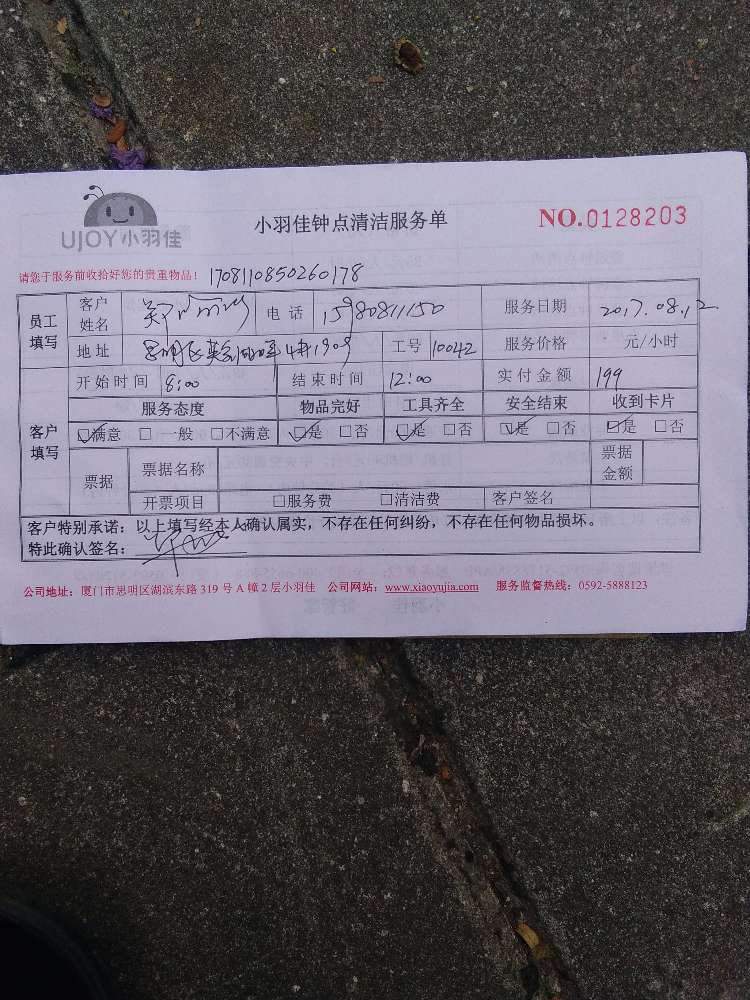 UJOY小羽佳
小羽佳钟点清洁服务单
NO.0128203
请您于服务前收拾好您的贵重物品! 1708110850260178
员工填写 客户姓名 郑 电话 15980811150 服务日期 2017.08.12
地址 思明区 1909 工号 10042 服务价格 元/小时
客户填写 开始时间 8:00 结束时间 12:00 实付金额 199
服务态度 物品完好 工具齐全 安全结束 收到卡片
☑满意 □一般 □不满意 ☑是 □否 ☑是 □否 ☑是 □否 ☑是 □否
票据 票据名称 票据金额
开票项目 □服务费 □清洁费 客户签名
客户特别承诺：以上填写经本人确认属实，不存在任何纠纷，不存在任何物品损坏。
特此确认签名：
公司地址：厦门市思明区湖滨东路 319 号 A 幢 2 层小羽佳 公司网站：www.xiaoyujia.com 服务监督热线：0592-5888123